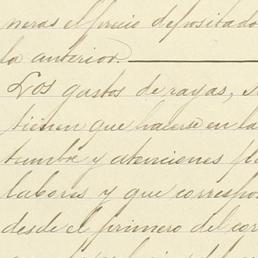 neras el precio depositado
la anterior.
Los gastos de rayas, 
tienen que hacerse en la
tumba y atenciones
labores y que correspo
desde el primero del cor